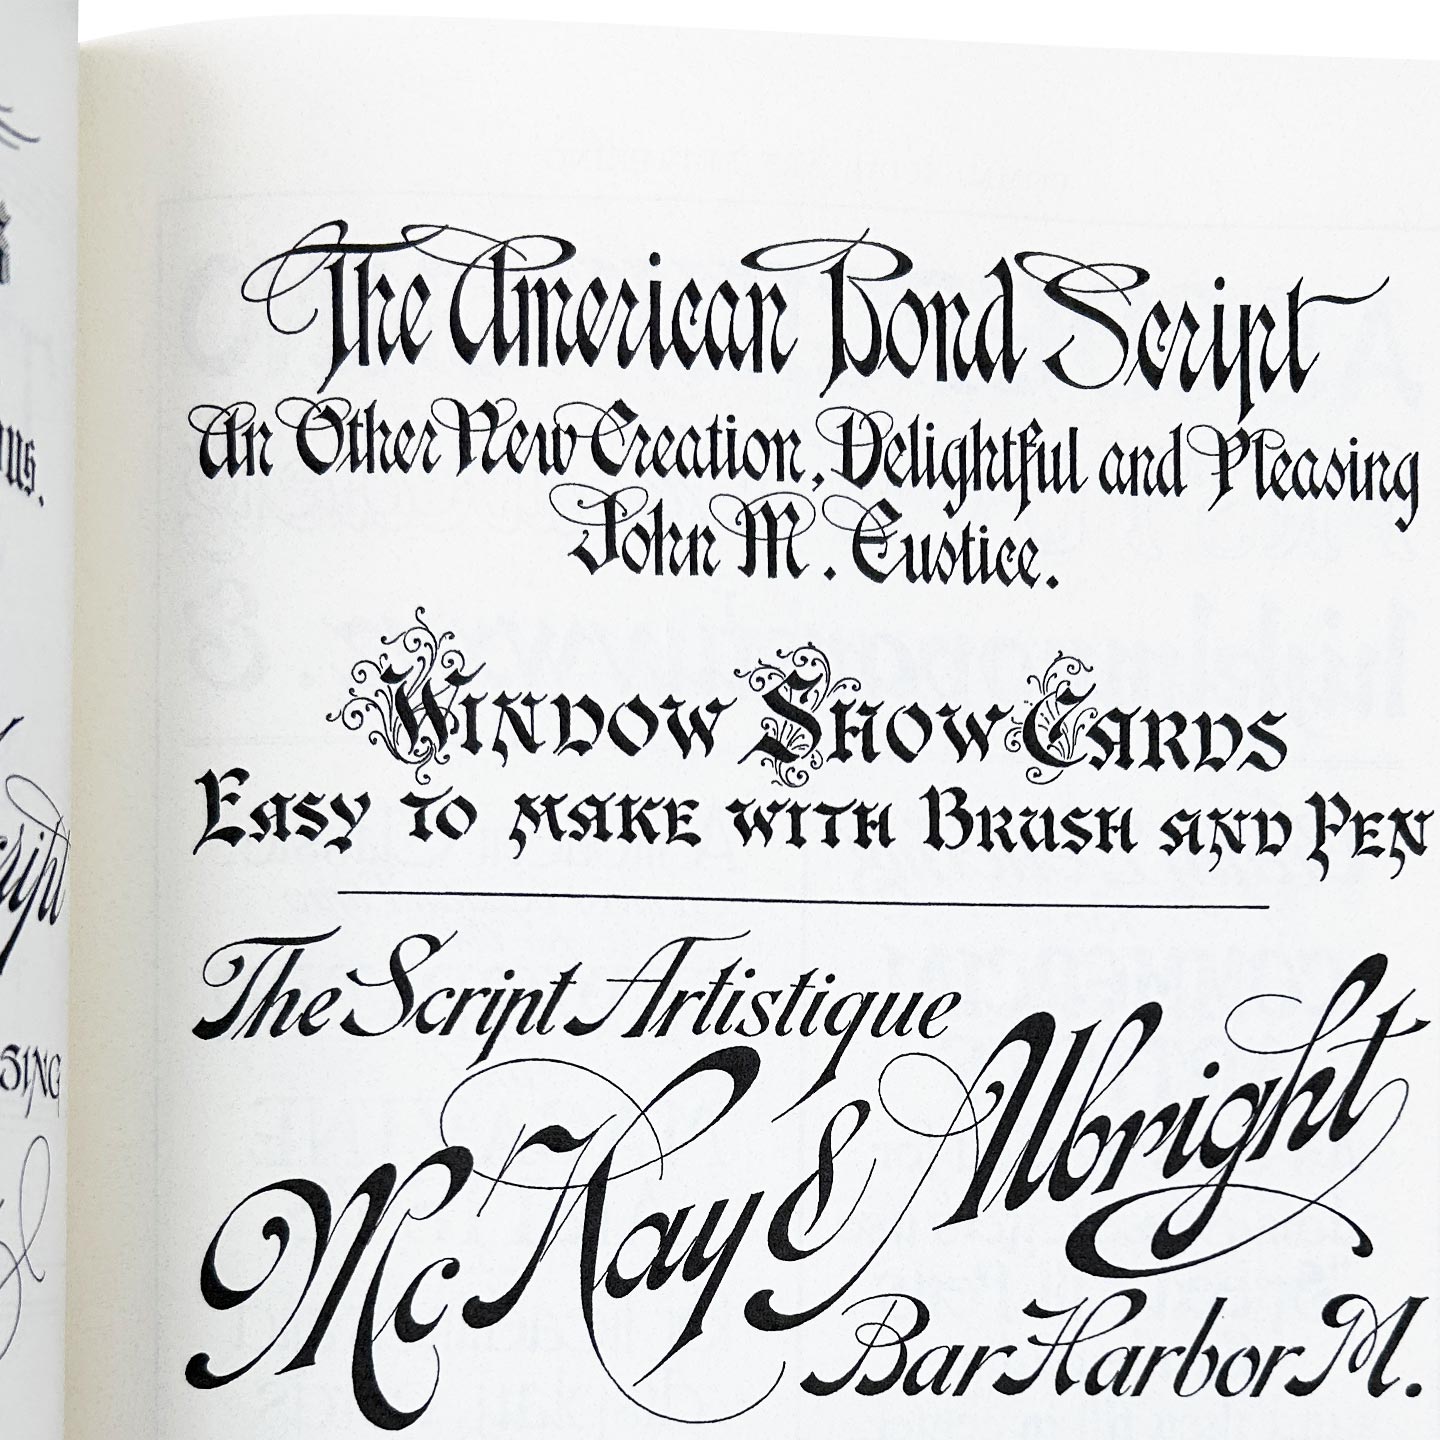 The American Bond Script
An Other New Creation, Delightful and Pleasing
John M. Eustice.
Window Show Cards
Easy to make with Brush and Pen
The Script Artistique
McKay & Albright
Bar Harbor M.